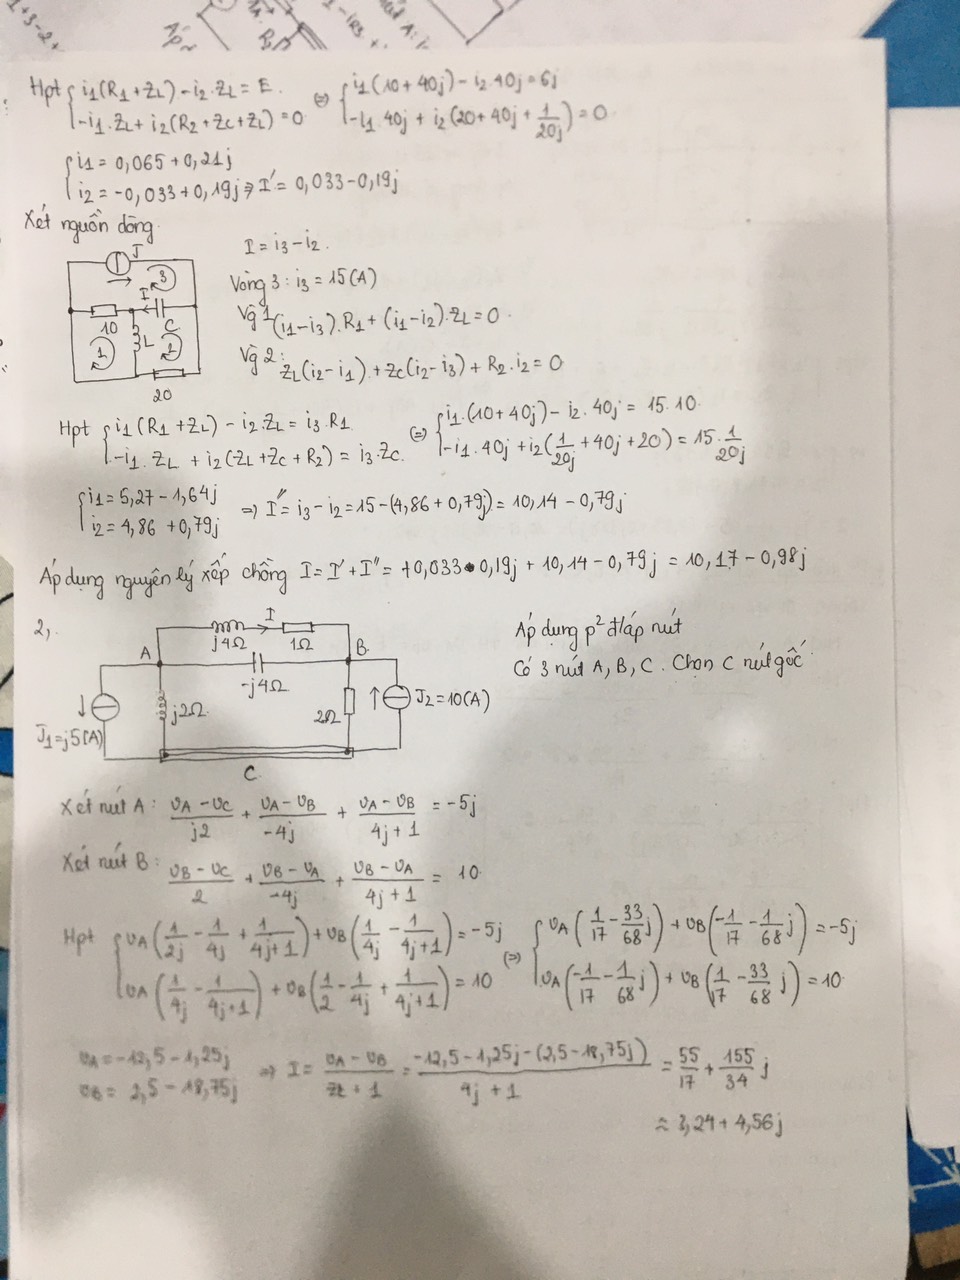 1+3-2+
Hpt { i1(R1+ZL) - i2.ZL = E. ⇔ { i1(10+40j) - i2.40j = 6j
-i1.ZL + i2(R2+ZC+ZL) = 0 -i1.40j + i2(20+40j+1/20j) = 0
{ i1 = 0,065+0,21j
i2 = -0,033+0,19j ⇒ I' = 0,033-0,19j
Xét nguồn dòng
J
I = i3 - i2.
3
I
Vòng 3: i3 = 15(A)
10
C
Vg 1: (i1-i3).R1 + (i1-i2).ZL = 0
1
L
2
Vg 2: ZL(i2-i1) + ZC(i2-i3) + R2.i2 = 0
20
Hpt { i1(R1+ZL) - i2.ZL = i3.R1 ⇔ { i1.(10+40j) - i2.40j = 15.10
-i1.ZL + i2(ZL+ZC+R2) = i3.ZC -i1.40j + i2(1/20j + 40j + 20) = 15.1/20j
{ i1 = 5,27 - 1,64j
i2 = 4,86 + 0,79j ⇒ I'' = i3 - i2 = 15 - (4,86+0,79j) = 10,14 - 0,79j
Áp dụng nguyên lý xếp chồng I = I' + I'' = +0,033 - 0,19j + 10,14 - 0,79j = 10,17 - 0,98j
2,
I
j4Ω
1Ω
A
B
-j4Ω
J1=j5(A)
j2Ω
2Ω
J2=10(A)
C
Áp dụng p² đ/áp nút
Có 3 nút A, B, C. Chọn C nút gốc
Xét nút A: (UA - UC)/j2 + (UA - UB)/-4j + (UA - UB)/(4j+1) = -5j
Xét nút B: (UB - UC)/2 + (UB - UA)/-4j + (UB - UA)/(4j+1) = 10
Hpt { UA(1/2j - 1/4j + 1/(4j+1)) + UB(1/4j - 1/(4j+1)) = -5j ⇔ { UA(1/17 - 33/68 j) + UB(-1/17 - 1/68 j) = -5j
UA(1/4j - 1/(4j+1)) + UB(1/2 - 1/4j + 1/(4j+1)) = 10 UA(-1/17 - 1/68 j) + UB(1/17 - 33/68 j) = 10
UA = -12,5 - 1,25j
UB = 2,5 - 18,75j ⇒ I = (UA - UB)/(ZL + 1) = (-12,5 - 1,25j - (2,5 - 18,75j))/(4j + 1) = 55/17 + 155/34 j
≈ 3,24 + 4,56j